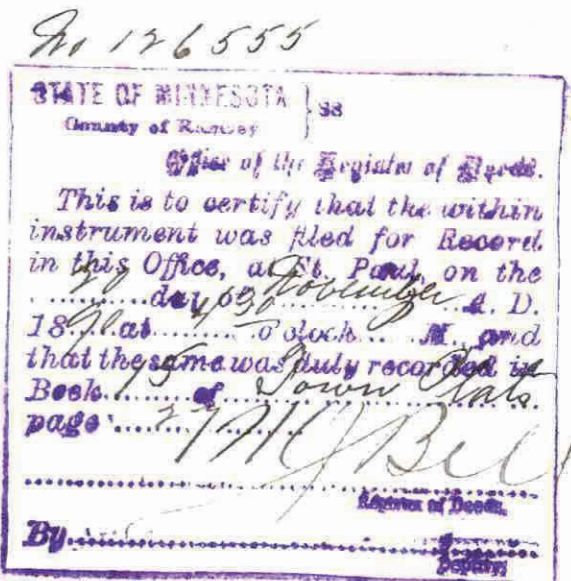 No 126555
STATE OF MINNESOTA } SS
County of Ramsey
Office of the Register of Deeds.
This is to certify that the within
instrument was filed for Record
in this Office, at St. Paul, on the
day of November A. D.
1890 at 4 30 o'clock M. and
that the same was duly recorded in
Book 15 of Town Plats
page 27
M J Bell
Register of Deeds.
By
Deputy.